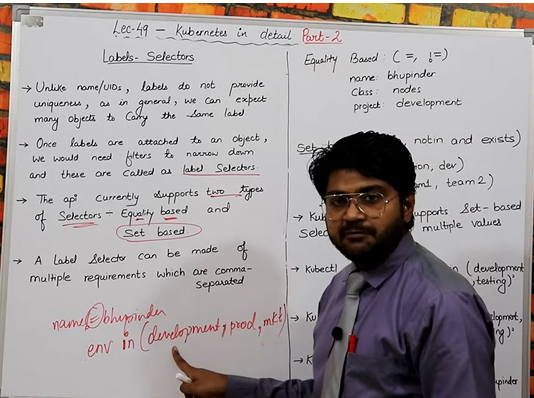 Lec-49 - Kubernetes in detail Part-2
Labels- Selectors
→ Unlike name/UIDs, labels do not provide
uniqueness, as in general, we can expect
many objects to carry the same label
→ Once labels are attached to an object,
we would need filters to narrow down
and these are called as label Selectors.
→ The api currently supports two types
of Selectors - Equality based and
Set based
→ A Label Selector can be made of
multiple requirements which are comma-
separated
name = bhupinder
env in (development, prod, mkt)
Equality Based : ( =, != )
name: bhupinder
Class: nodes
project: development
Set notin and exists)
on, dev)
team 2)
supports Set-based
Selec multiple values
→ Kubectl in (development
, testing)'